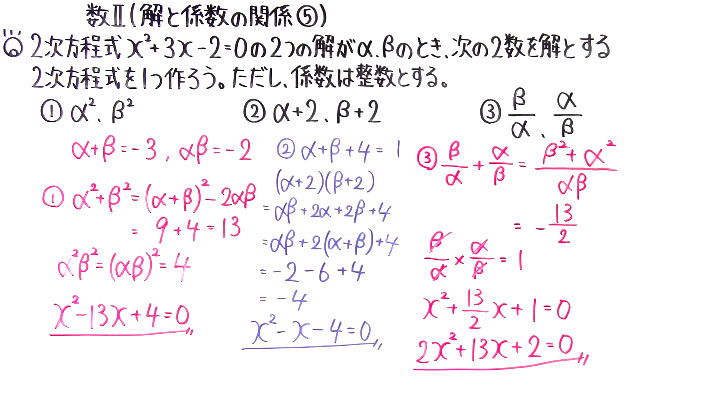 数Ⅱ(解と係数の関係⑤)
2次方程式x²+3x-2=0の2つの解がα、βのとき、次の2数を解とする
2次方程式を1つ作ろう。ただし、係数は整数とする。
① α²、β²
② α+2、β+2
③ β/α、α/β
α+β=-3, αβ=-2
① α²+β²=(α+β)²-2αβ
= 9+4=13
α²β²=(αβ)²=4
x²-13x+4=0
② α+β+4=1
(α+2)(β+2)
=αβ+2α+2β+4
=αβ+2(α+β)+4
=-2-6+4
=-4
x²-x-4=0
③ β/α+α/β=(β²+α²)/αβ
=-13/2
β/α×α/β=1
x²+13/2x+1=0
2x²+13x+2=0